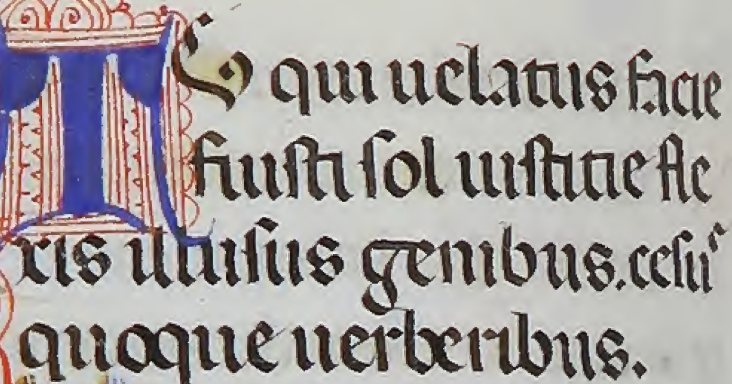 IS qui uelatus facie
fuisti sol iustitie fle
xis illusus genibus. cesusͬ
quoque uerberibus.